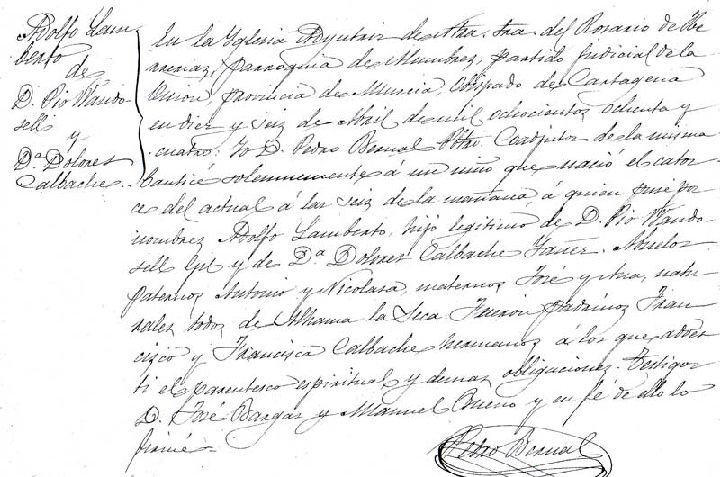 Adolfo Lam
berto
de
D. Pio Wando
sell
y
Dª Dolores
Calbache.
En la Yglesia Coadjutriz de Ntra. Sra. del Rosario de He
rrerias, parroquia de Alumbres, partido judicial de la
Union, provincia de Murcia, Obispado de Cartagena
en diez y seis de Abril de mil ochocientos ochenta y
cuatro: Yo D. Pedro Bernal Pbro. Coadjutor de la misma
bauticé solemnemente á un niño que nació el cator
ce del actual á las seis de la mañana á quien puse por
nombres Adolfo Lamberto, hijo legitimo de D. Pio Wando
sell Gil y de Dª Dolores Calbache Yañez. Abuelos
paternos Antonio y Nicolasa, maternos José y Ana, natu
rales todos de Alhama la Seca Fueron padrinos Fran
cisco y Francisca Calbache hermanos á los que adver
ti el parentesco espiritual y demas obligaciones. Testigos
D. José Bargas y Manuel Bueno y en fé de ello lo
firmé.
Pedro Bernal